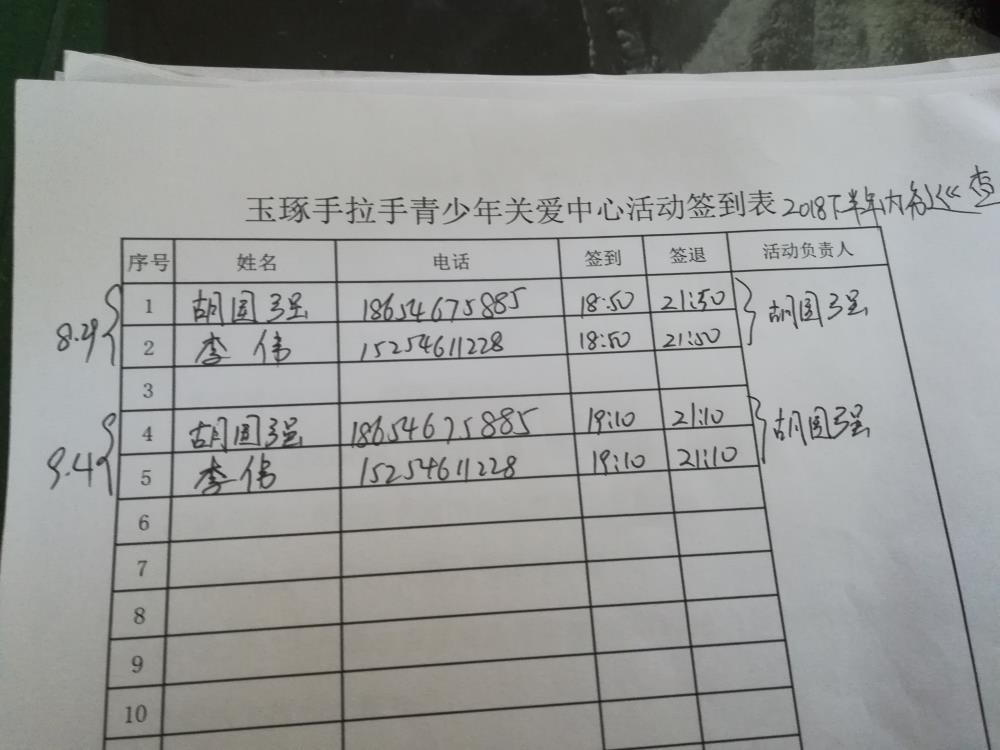 玉琢手拉手青少年关爱中心活动签到表 2018下半年内务巡查
序号 姓名 电话 签到 签退 活动负责人
8.29 1 胡国强 18654675885 18:50 21:50 胡国强
2 李伟 15254611228 18:50 21:50
3
9.4 4 胡国强 18654675885 19:10 21:10 胡国强
5 李伟 15254611228 19:10 21:10
6
7
8
9
10